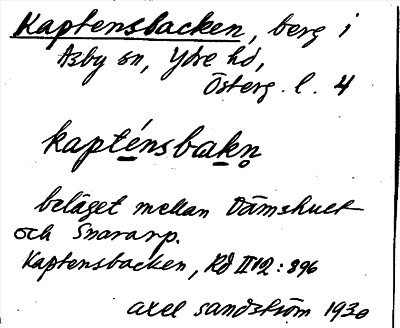 Kaptensbacken, berg i
Asby sn, Ydre hd,
Österg. l. 4
kapténsbakn̥
beläget mellan Dämshult
och Snararp.
Kaptensbacken, Rd II 12:896
Axel Sandström 1930